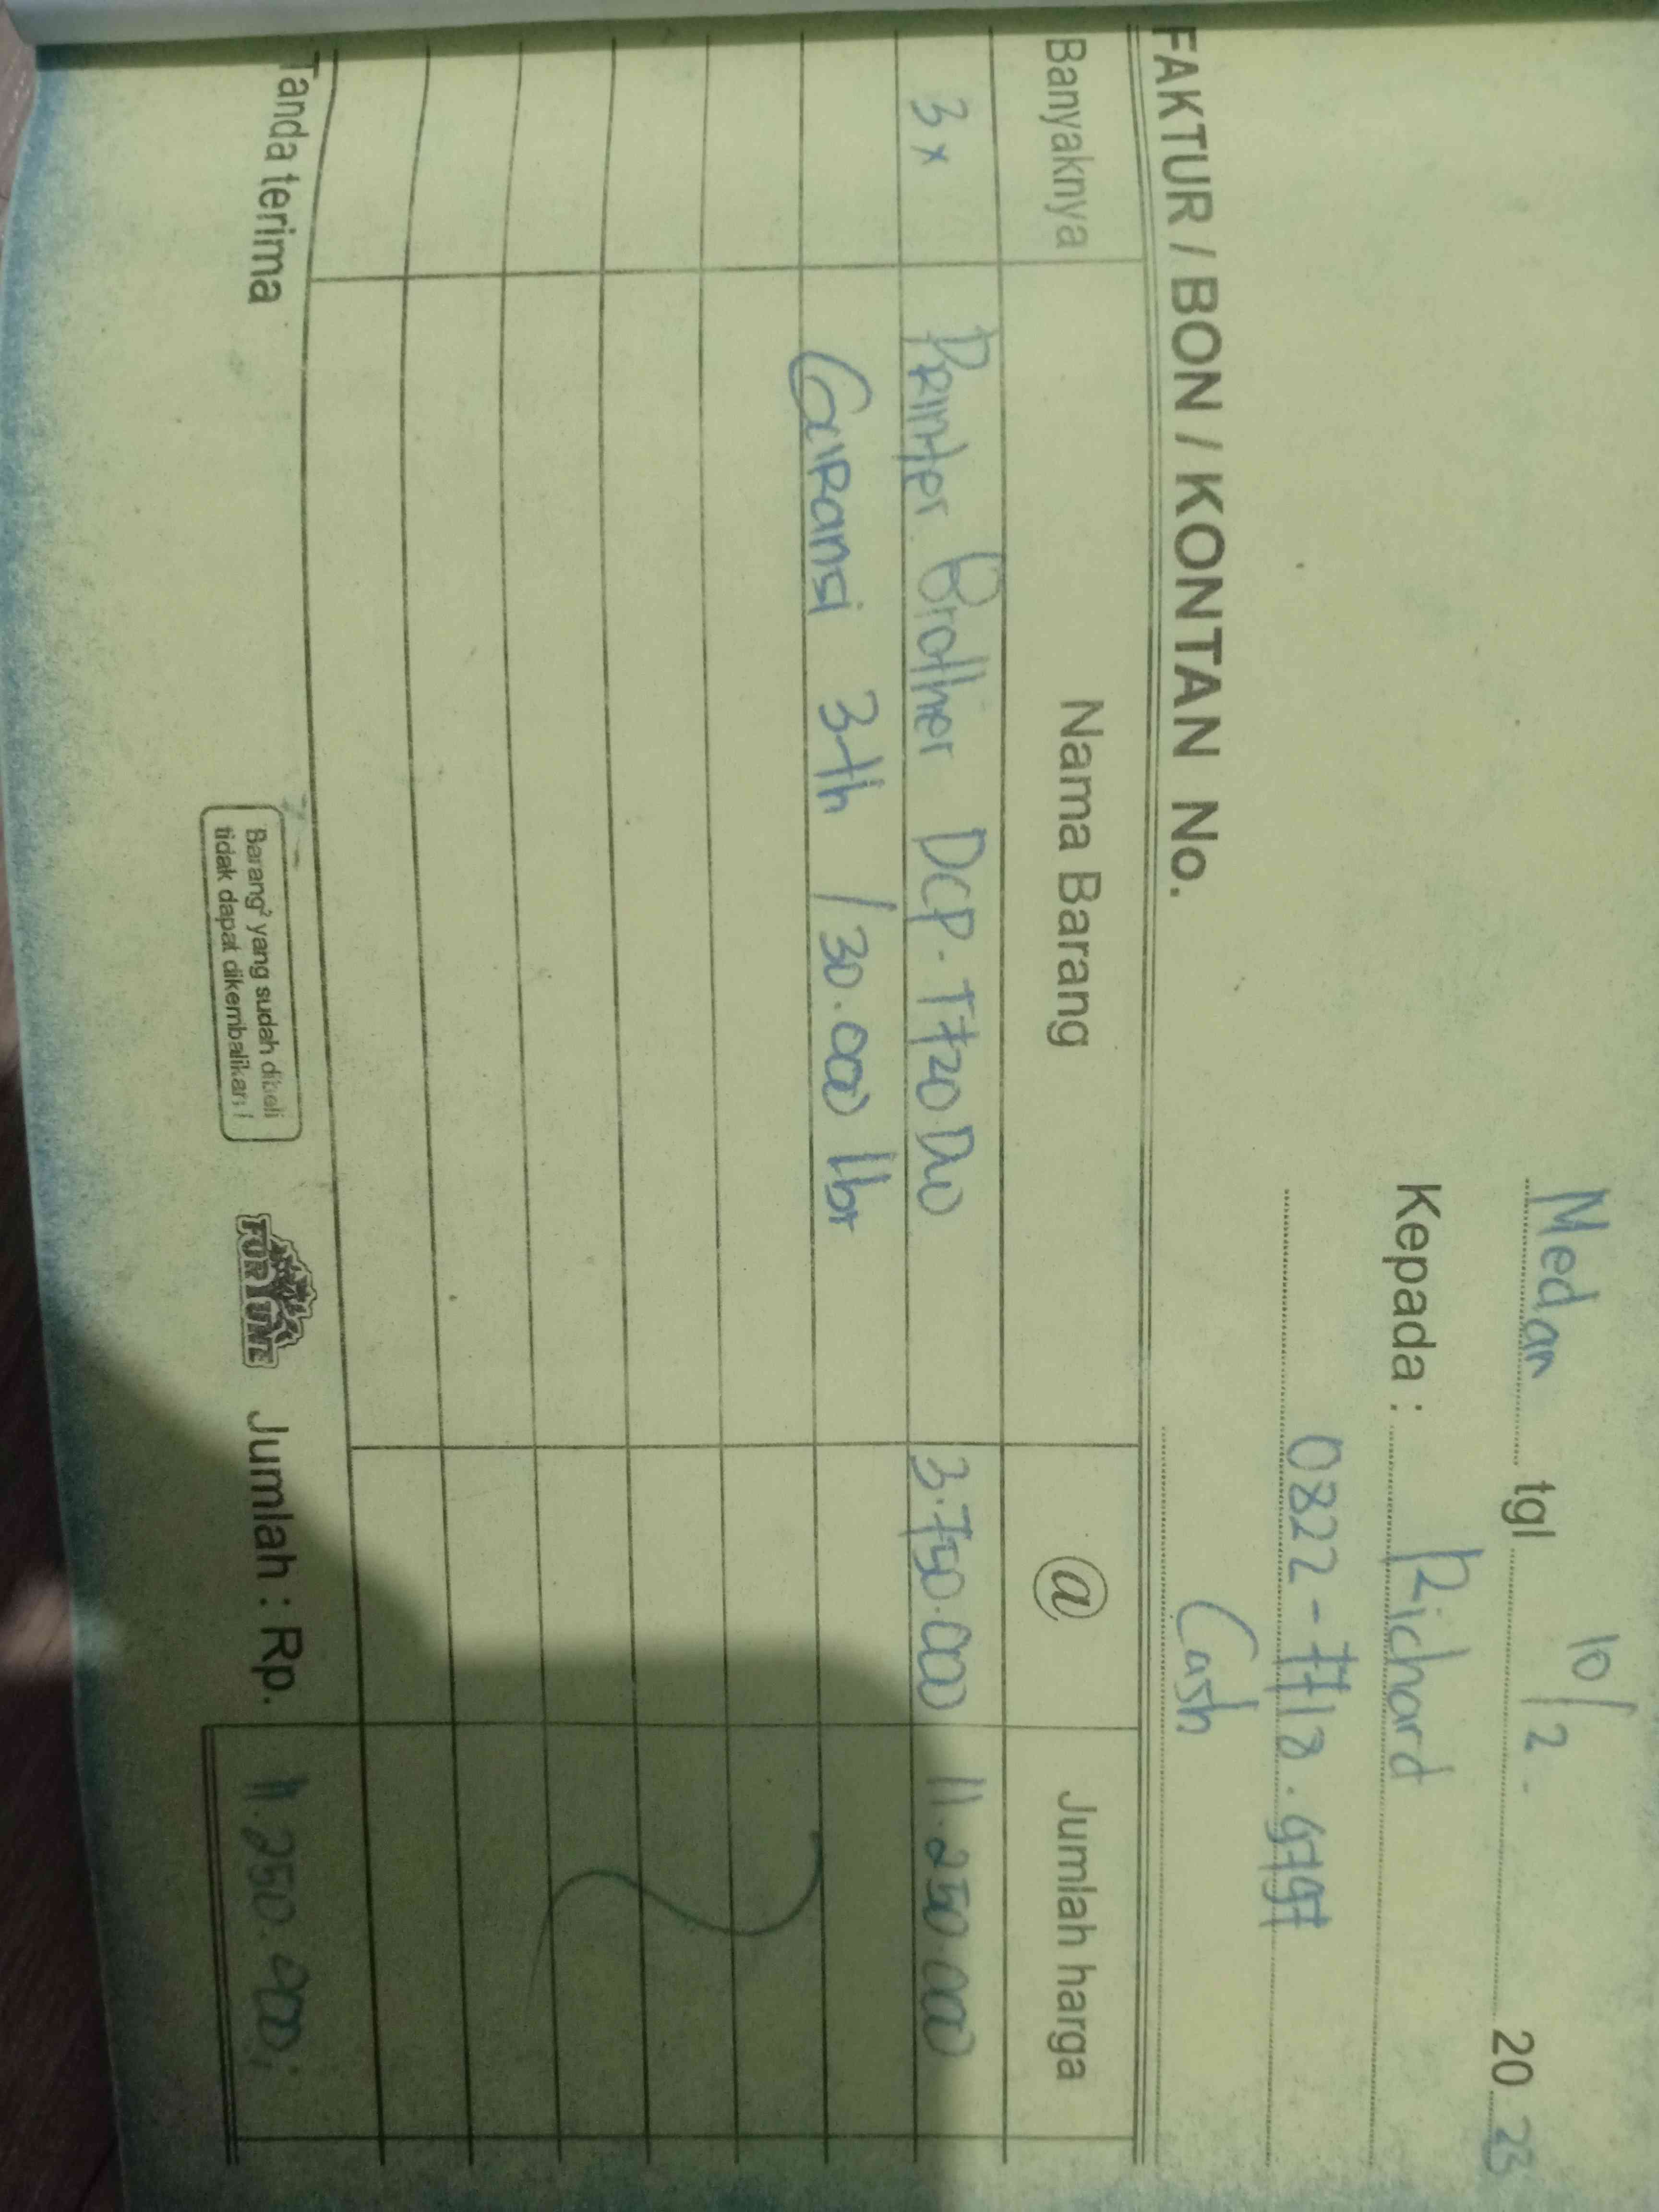 Medan tgl 10/2 . 20 23
Kepada : Richard
0822-7718.9797
Cash
FAKTUR / BON / KONTAN No.
Banyaknya Nama Barang @ Jumlah harga
3x Printer Brother DCP-T720DW 3.750.000 11.250.000
Garansi 3th / 30.000 lbr
Tanda terima
Barang² yang sudah dibeli
tidak dapat dikembalikan !
FORTUNE
Jumlah : Rp. 11.250.000,